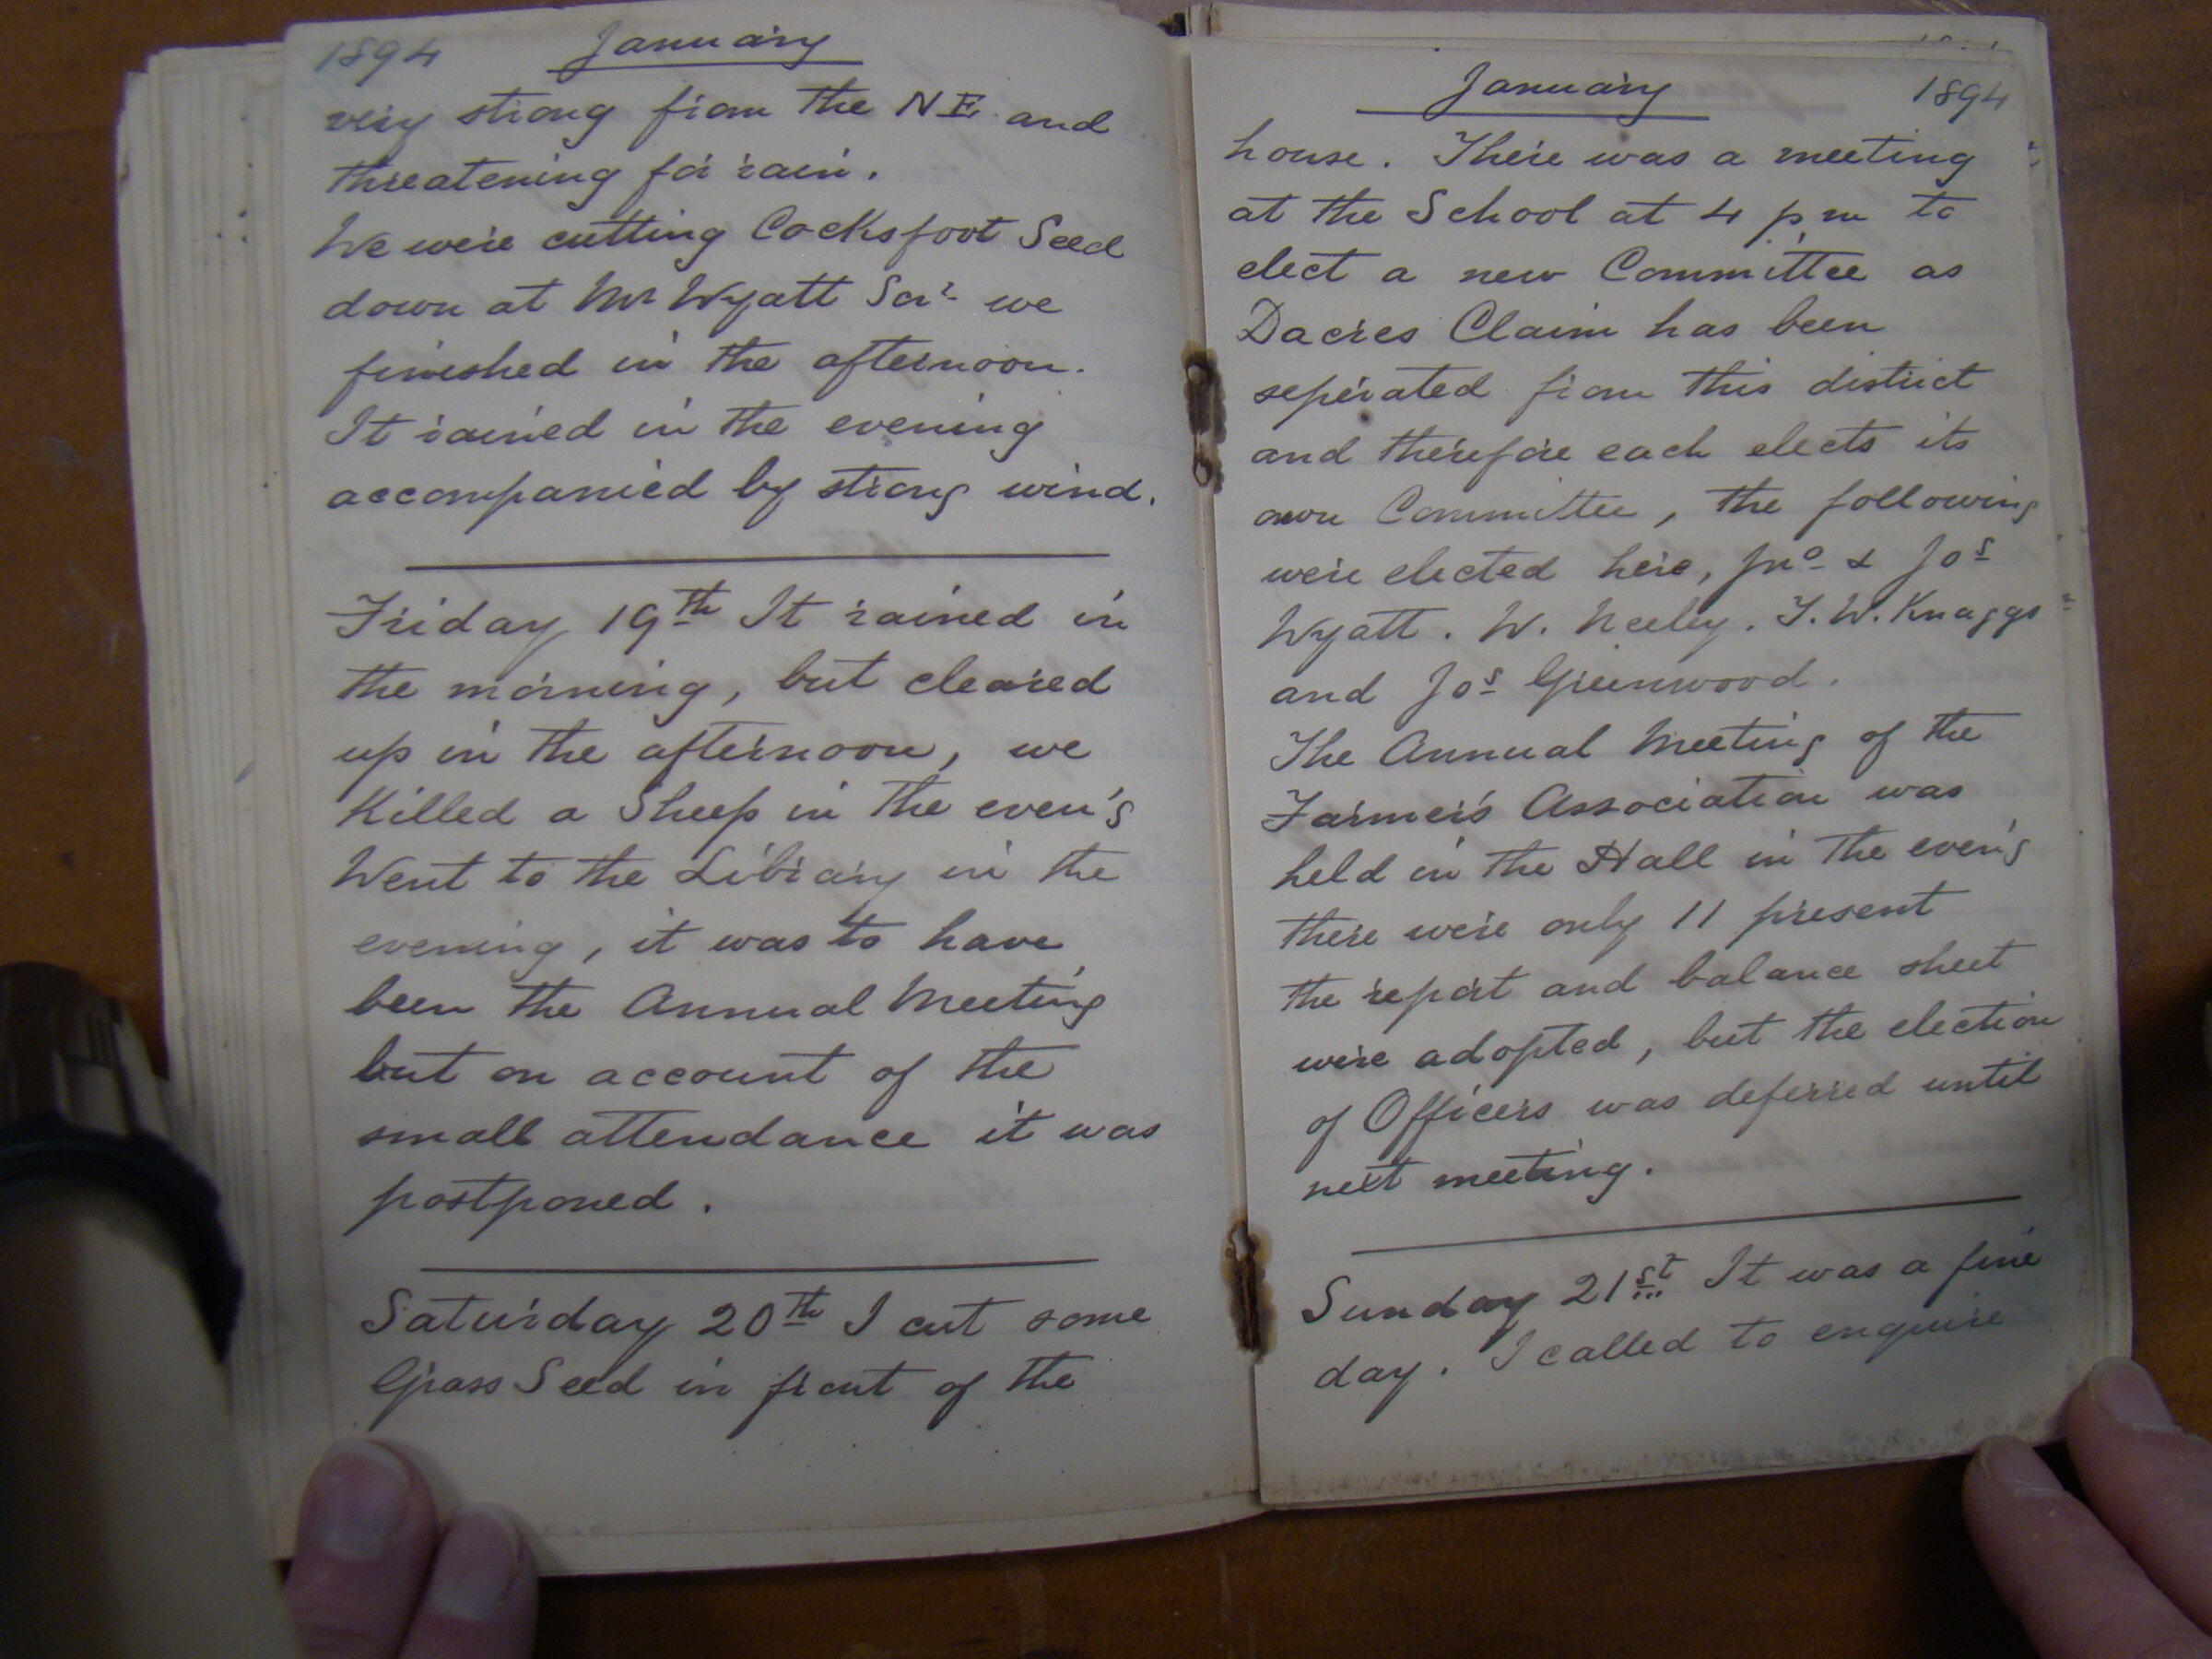 1894 January
very strong from the N E. and
threatening for rain.
We were cutting Cocksfoot Seed
down at Mr Wyatt Senr we
finished in the afternoon.
It rained in the evening
accompanied by strong wind.
Friday 19th It rained in
the morning, but cleared
up in the afternoon, we
Killed a Sheep in the even'g
Went to the Library in the
evening, it was to have
been the Annual Meeting
but on account of the
small attendance it was
postponed.
Saturday 20th I cut some
Grass Seed in front of the
January 1894
house. There was a meeting
at the School at 4 p.m to
elect a new Committee as
Dacres Claim has been
seperated from this district
and therefore each elects its
own Committee, the following
were elected here, Jno & Jos
Wyatt. W. Neeley. T. W. Knaggs
and Jos Greenwood.
The Annual Meeting of the
Farmer's Association was
held in the Hall in the even'g
there were only 11 present
the report and balance sheet
were adopted, but the election
of Officers was deferred until
next meeting.
Sunday 21st It was a fine
day. I called to enquire